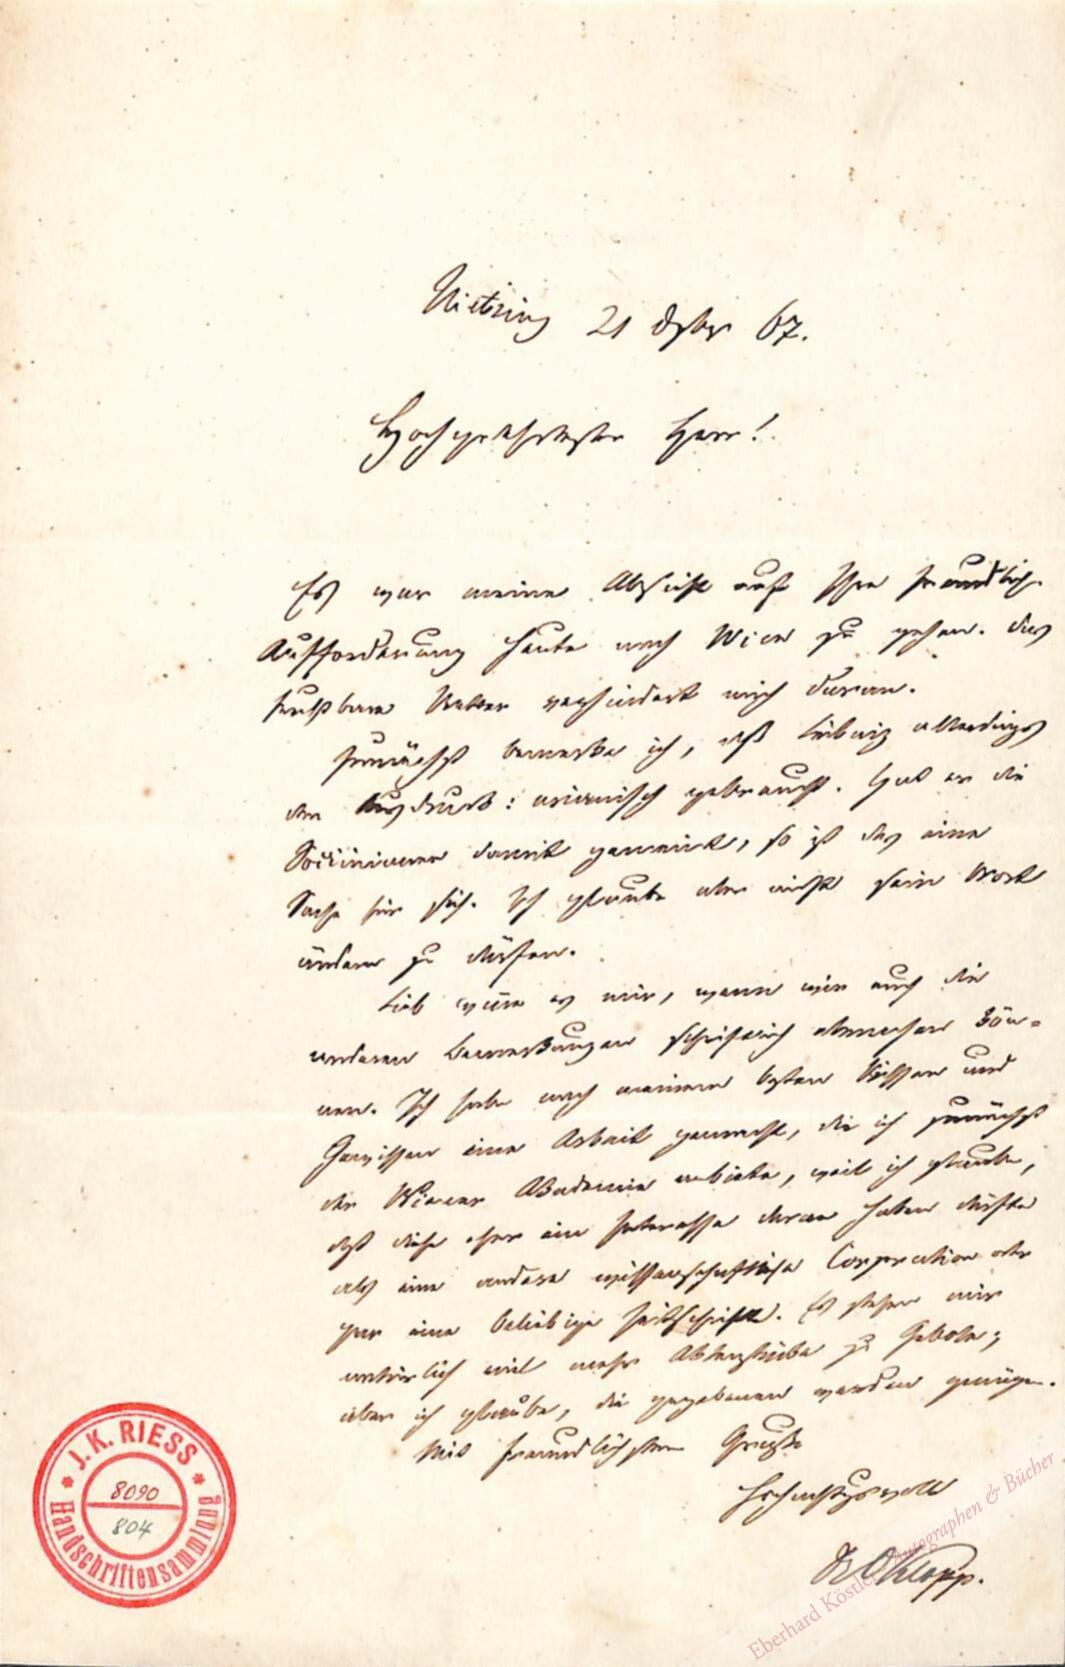 Hietzing 21 Dzbr 67.
Hochgeehrtester Herr!
Es war meine Absicht auf Ihre freundliche
Aufforderung heute nach Wien zu gehen. Das
furchtbare Wetter verhindert mich daran.
Zunächst bemerke ich, daß Leibniz allerdings
den Ausdruck: arianisch gebraucht. Hat er die
Socinianer damit gemeint, so ist das eine
Sache für sich. Ich glaube aber nicht sein Wort
ändern zu dürfen.
Lieb wäre es mir, wenn wir auch die
anderen Bemerkungen schriftlich abmachen kön-
nen. Ich habe nach meinem besten Wissen und
Gewissen eine Arbeit gemacht, die ich zunächst
der Wiener Akademie anbiete, weil ich glaube,
daß diese eher ein Interesse daran haben dürfte
als eine andere wissenschaftliche Corporation oder
gar eine beliebige Zeitschrift. Es stehen mir
natürlich viel mehr Aktenstücke zu Gebote;
aber ich glaube, die gegebenen werden genügen.
Mit freundlichstem Gruße
hochachtungsvoll
Dr OKlopp.
J. K. RIESS
8090
804
Handschriftensammlung
Eberhard Köstler Autographen & Bücher